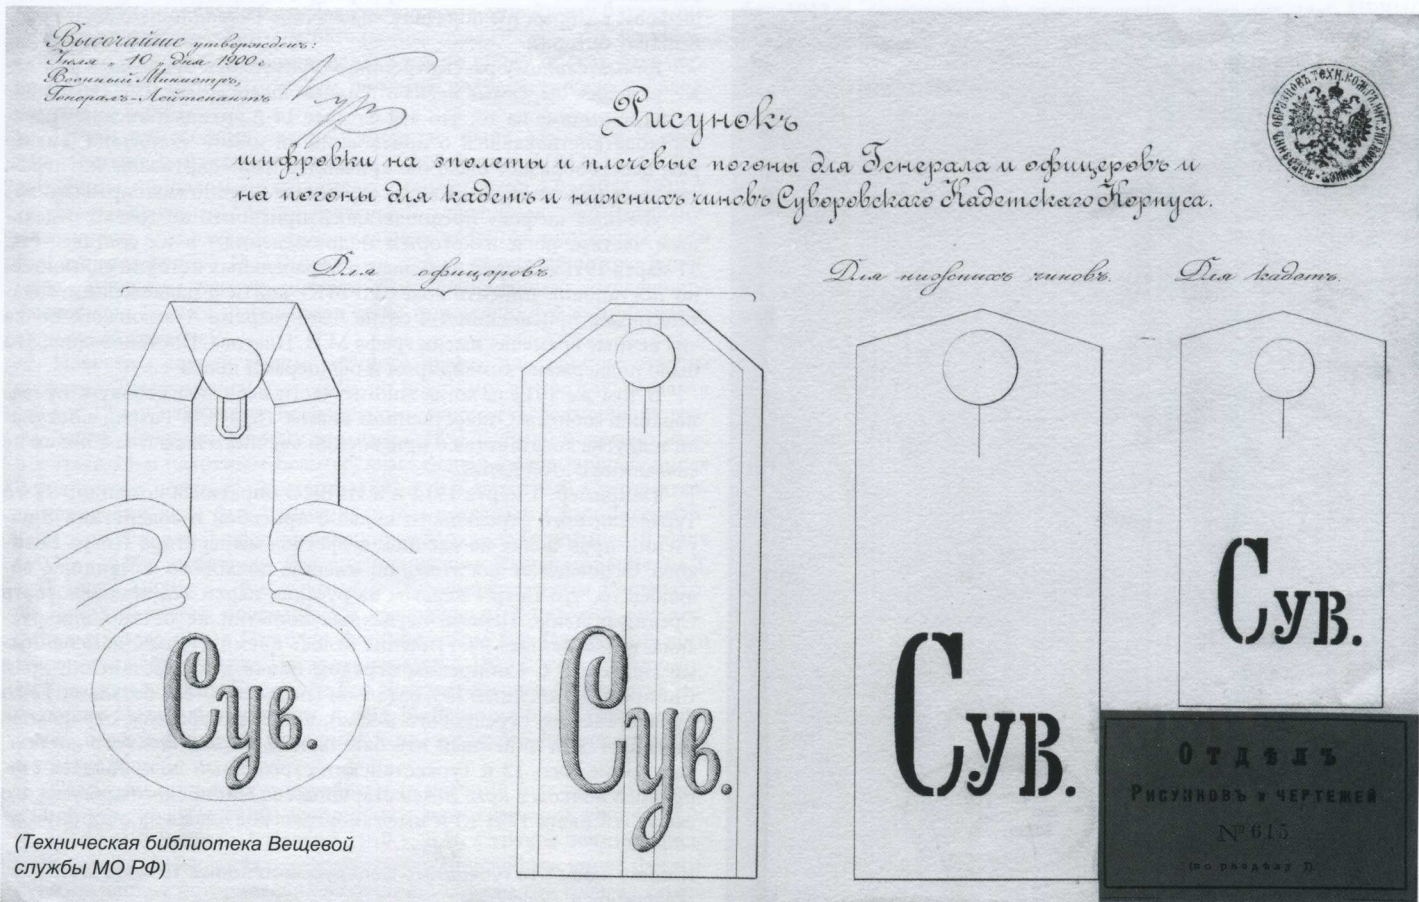 Высочайше утвержденъ:
Іюля „ 10 „ дня 1900 г.
Военный Министръ,
Генералъ-Лейтенантъ
Рисунокъ
шифровки на эполеты и плечевые погоны для Генерала и офицеровъ и
на погоны для кадетъ и нижнихъ чиновъ Суворовскаго Кадетскаго Корпуса.
Для офицеровъ.
Для нижнихъ чиновъ.
Для кадетъ.
Сув.
Сув.
Сув.
Сув.
Отдѣлъ
Рисунковъ и чертежей
№ 615
(по раздѣлу I).
(Техническая библиотека Вещевой
службы МО РФ)